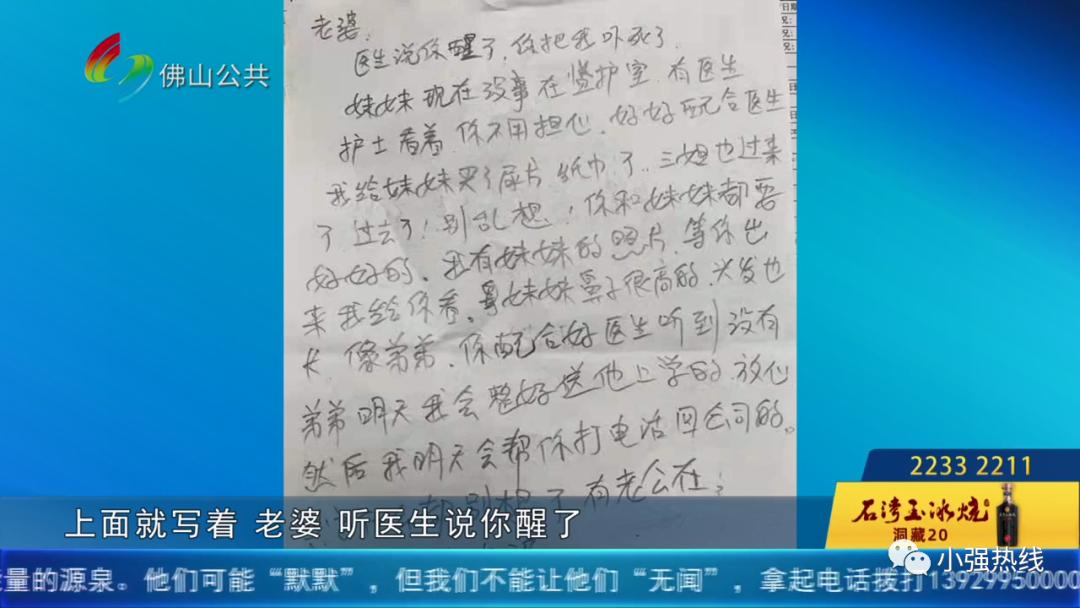 佛山公共
老婆:
医生说你醒了,你把我吓死了.
妹妹现在没事在监护室.有医生
护士看着.你不用担心.好好配合医生
我给妹妹买了尿片 纸巾了..三姐也过来
了 过去了!别乱想.!你和妹妹都要
好好的.我有妹妹的照片.等你出
来我给你看.妹妹鼻子很高的.头发也
长.像弟弟.你配合好医生听到没有
弟弟明天我会整好送他上学的.放心
然后我明天会帮你打电话回公司的。
别想了 有老公在
上面就写着 老婆 听医生说你醒了
2233 2211
石湾玉冰烧
洞藏20
小强热线
量的源泉。他们可能“默默”，但我们不能让他们“无闻”，拿起电话拨打13929950000